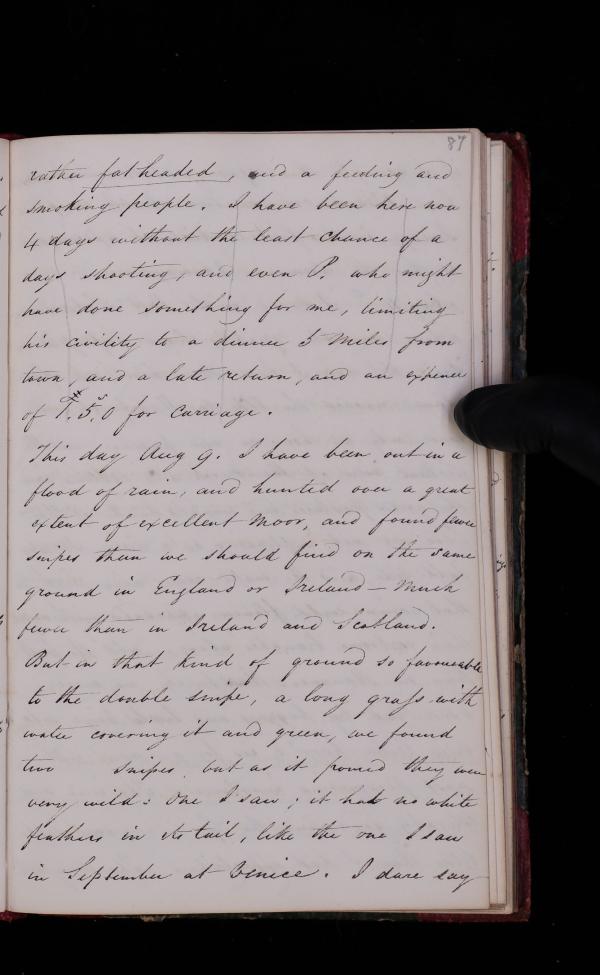 87
rather fatheaded, and a feeding and
smoking people. I have been here now
4 days without the least chance of a
days shooting, and even P. who might
have done something for me, limiting
his civility to a dinner 5 miles from
town, and a late return, and an expence
of 5.0 for carriage.
This day Aug 9. I have been out in a
flood of rain, and hunted over a great
extent of excellent moor, and found fewer
snipes than we should find on the same
ground in England or Ireland - Much
fewer than in Ireland and Scotland.
But in that kind of ground so favourable
to the double snipe, a long grass with
water covering it and green, we found
two snipes. but as it proved they were
very wild: One I saw; it had no white
feathers in its tail, like the one I saw
in September at Venice. I dare say